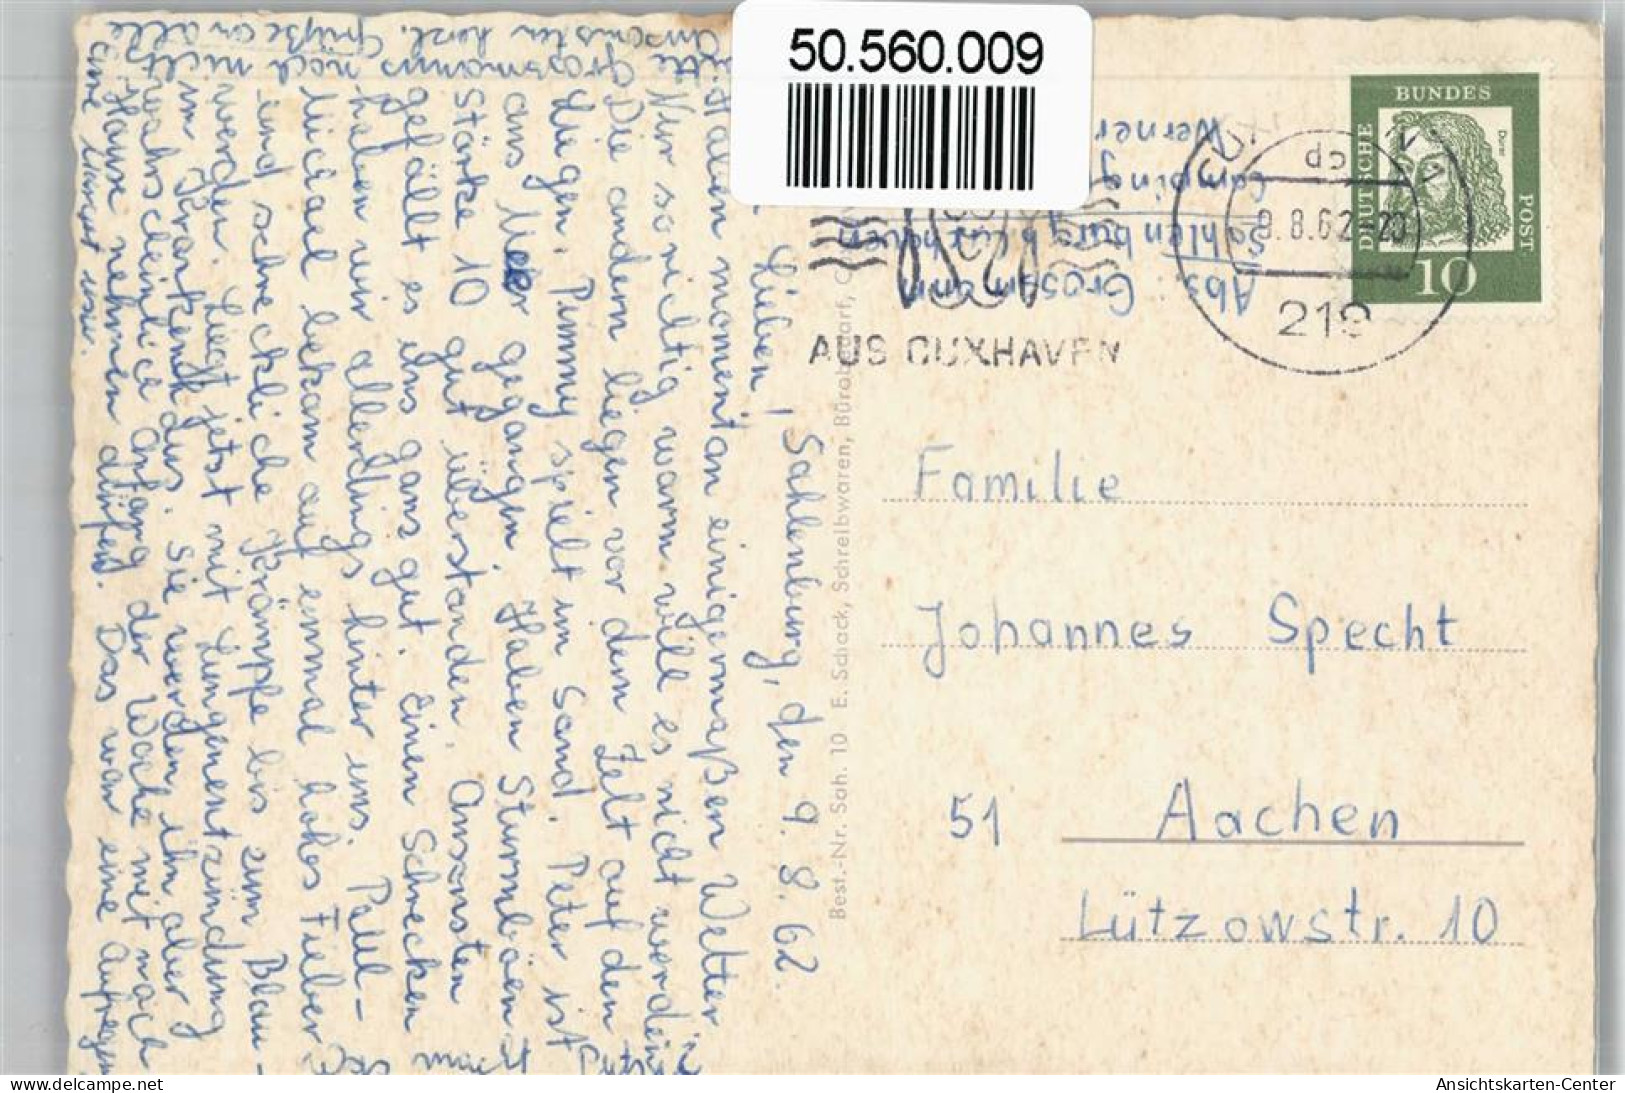 50.560.009
DEUTSCHE
BUNDES
POST
Dürer
10
9.8.62-20
219
AUS CUXHAVEN
Abs.: Grossmann
Sahlenburg b. Cuxhaven
Camping
Werner
Familie
Johannes Specht
51 Aachen
Lützowstr. 10
Best.-Nr. Sah. 10 E. Schack, Schreibwaren, Bürobedarf, C
Sahlenburg, den 9.8.62.
Lieben!
Haben momentan einigermaßen Wetter
Nur so richtig warm will es nicht werden.
Die andern liegen vor dem Zelt auf den
Liegen. Pummy spielt im Sand. Peter ist
ans Meer gegangen. Haben Sturmböen
Stärke 10 gut überstanden. Ansonsten
gefällt es uns ganz gut. Einen Schrecken
haben wir allerdings hinter uns.
Michael bekam auf einmal hohes Fieber
und schreckliche Krämpfe bis zum Blau-
werden. Liegt jetzt mit Lungenentzündung
im Krankenhaus. Sie werden ihn aber
wahrscheinlich anfang der Woche mit nach
Hause nehmen dürfen. Das war eine Aufregung
Grossmanns noch nicht
Ansonsten herzl. Grüße an alle